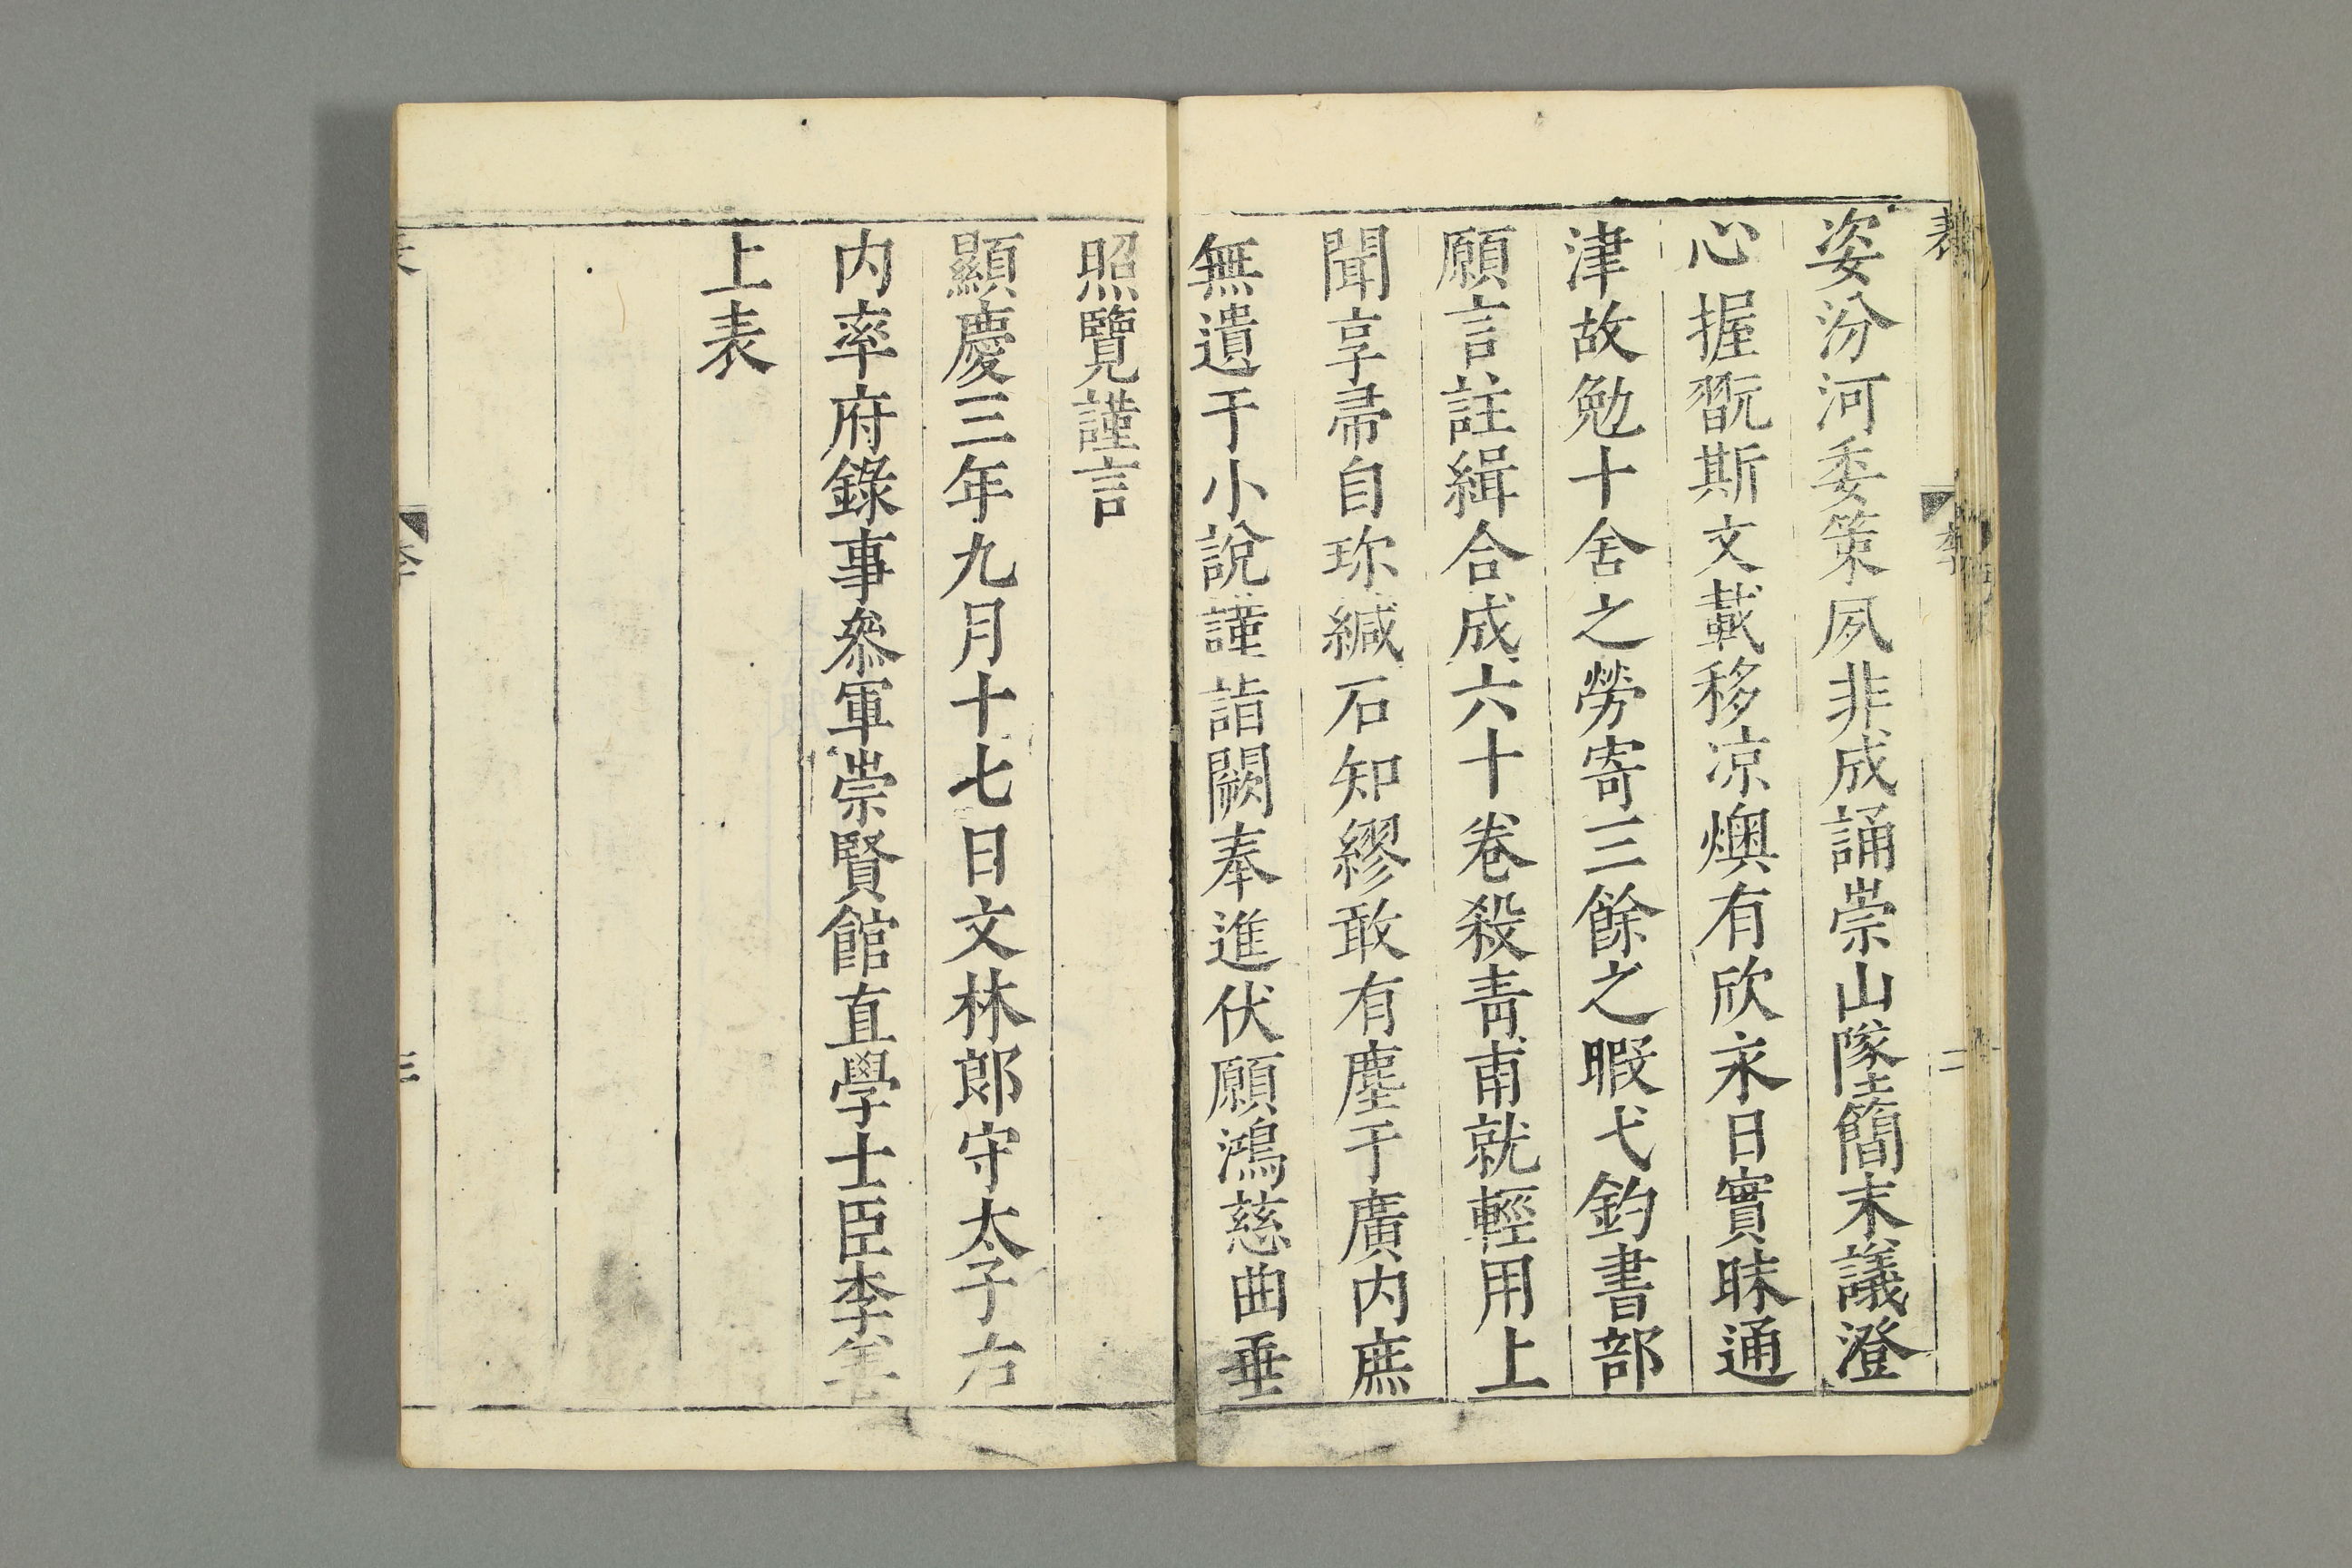 表
二
姿汾河委筴夙非成誦崇山隊簡末議澄
心握翫斯文載移凉燠有欣永日實昧通
津故勉十舍之勞寄三餘之暇弋釣書部
願言註緝合成六十卷殺青甫就輕用上
聞享帚自珎緘石知繆敢有塵于廣内庶
無遺于小說謹詣闕奉進伏願鴻慈曲垂
照覽謹言
顯慶三年九月十七日文林郎守太子右
内率府錄事叅軍崇賢館直學士臣李善
上表
三